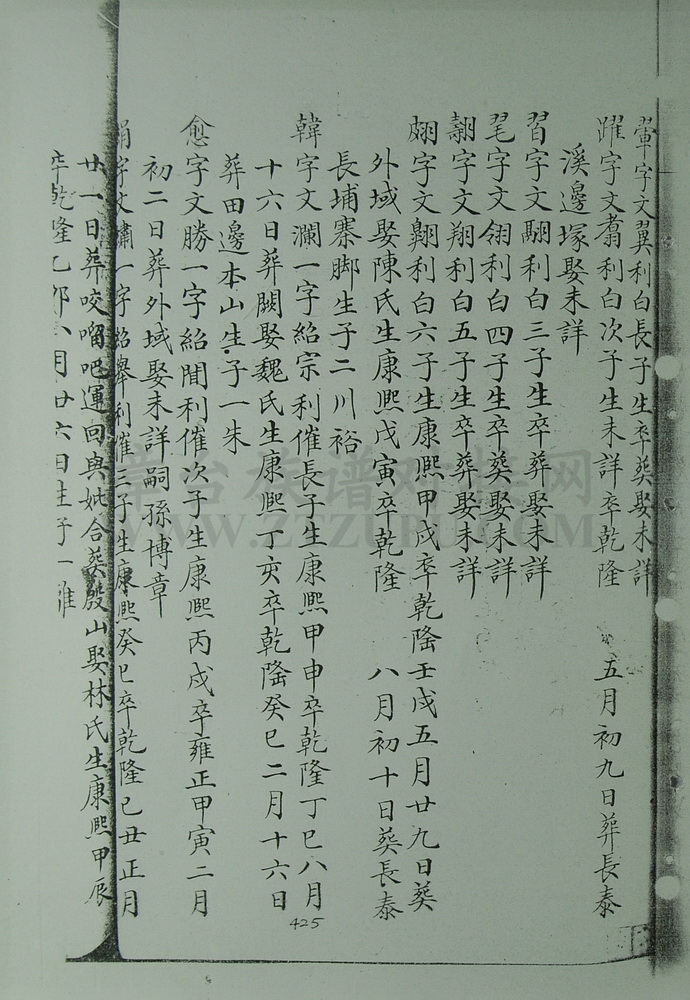 翬字文翼利白長子生卒葬娶未詳
躍字文翥利白次子生未詳卒乾隆 五月初九日葬長泰
溪邊塚娶未詳
習字文翮利白三子生卒葬娶未詳
翟字文翎利白四子生卒葬娶未詳
翿字文翔利白五子生卒葬娶未詳
翃字文翱利白六子生康熙甲戌卒乾隆壬戌五月廿九日葬
外域娶陳氏生康熙戊寅卒乾隆 八月初十日葬長泰
長埔寨脚生子二川裕
韓字文瀾一字紹宗利催長子生康熙甲申卒乾隆丁巳八月
十六日葬闕娶魏氏生康熙丁亥卒乾隆癸巳二月十六日
葬田邊本山生子一朱
愈字文勝一字紹聞利催次子生康熙丙戌卒雍正甲寅二月
初二日葬外域娶未詳嗣孫博章
字文繡一字紹舉利催三子生康熙癸巳卒乾隆己丑正月
廿一日葬咬𠺕吧運回與妣合葬殷山娶林氏生康熙甲辰
卒乾隆乙卯八月廿六日生子一雅
425